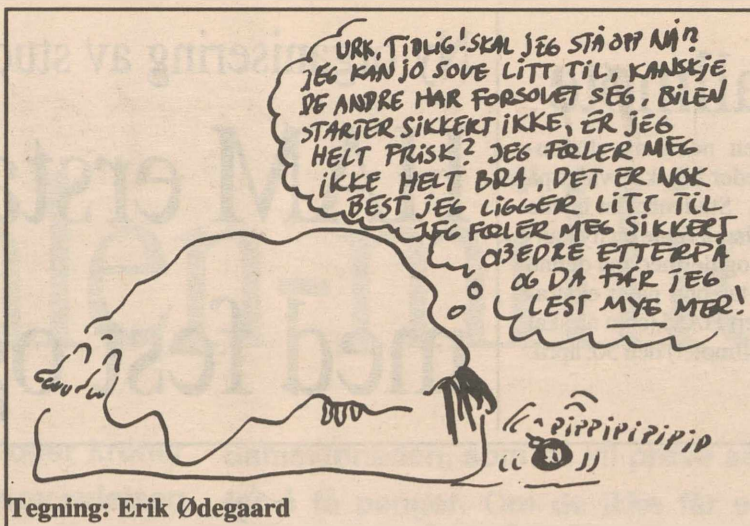 URK, TIDLIG! SKAL JEG STÅ OPP NÅ??
JEG KAN JO SOVE LITT TIL, KANSKJE
DE ANDRE HAR FORSOVET SEG, BILEN
STARTER SIKKERT IKKE, ER JEG
HELT FRISK? JEG FØLER MEG
IKKE HELT BRA, DET ER NOK
BEST JEG LIGGER LITT TIL
JEG FØLER MEG SIKKERT
BEDRE ETTERPÅ
OG DA FÅR JEG
LEST MYE MER!
PIPPIPIPIPIP
Tegning: Erik Ødegaard